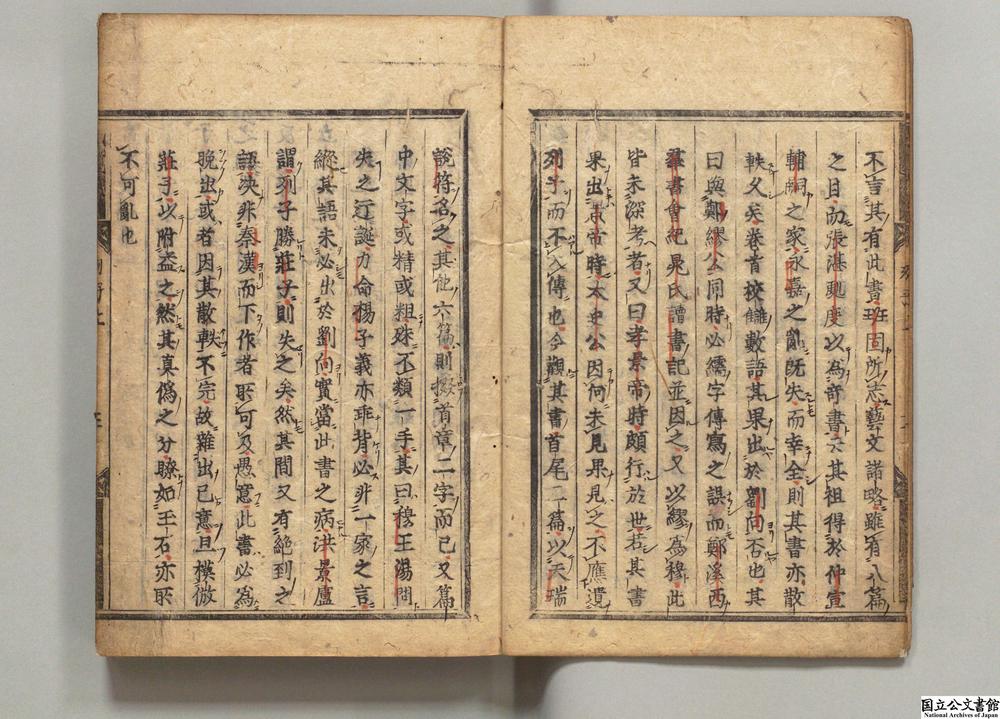 不言其有此書班固所志藝文諸略雖有八篇
之目而張湛𨔝度以為奇書云其祖得於仲宣
輔嗣之家永嘉之亂既失而幸全則其書亦散
軼久矣卷首校讎數語其果出於劉向否也其
曰與鄭繆公同時必繻字傳寫之誤而鄭溪西
羣書會紀晁氏讀書記並因之又以繆為穆此
皆未深考者又曰孝景帝時頗行於世若其書
果出景帝時太史公因何未見果見之不應遺
列子而不入傳也今觀其書首尾二篇以天瑞
說符名之其他六篇則掇首章二字而已又篇
中文字或精或粗殊不類一手其曰穆王湯問
失之迂誕力命楊子義亦乖背必非一家之言
縱其語未必出於劉向實當此書之病洪景盧
謂列子勝莊子則失之矣然其間又有絕到之
語決非秦漢而下作者所可及愚意此書必為
晚出或者因其散軼不完故雜出己意且模倣
莊子以附益之然其真偽之分瞭如玉石亦所
不可亂也
国立公文書館
National Archives of Japan